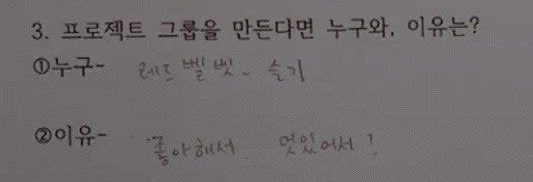 3. 프로젝트 그룹을 만든다면 누구와, 이유는?
①누구- 레드벨벳- 슬기
②이유- 좋아해서. 멋있어서!